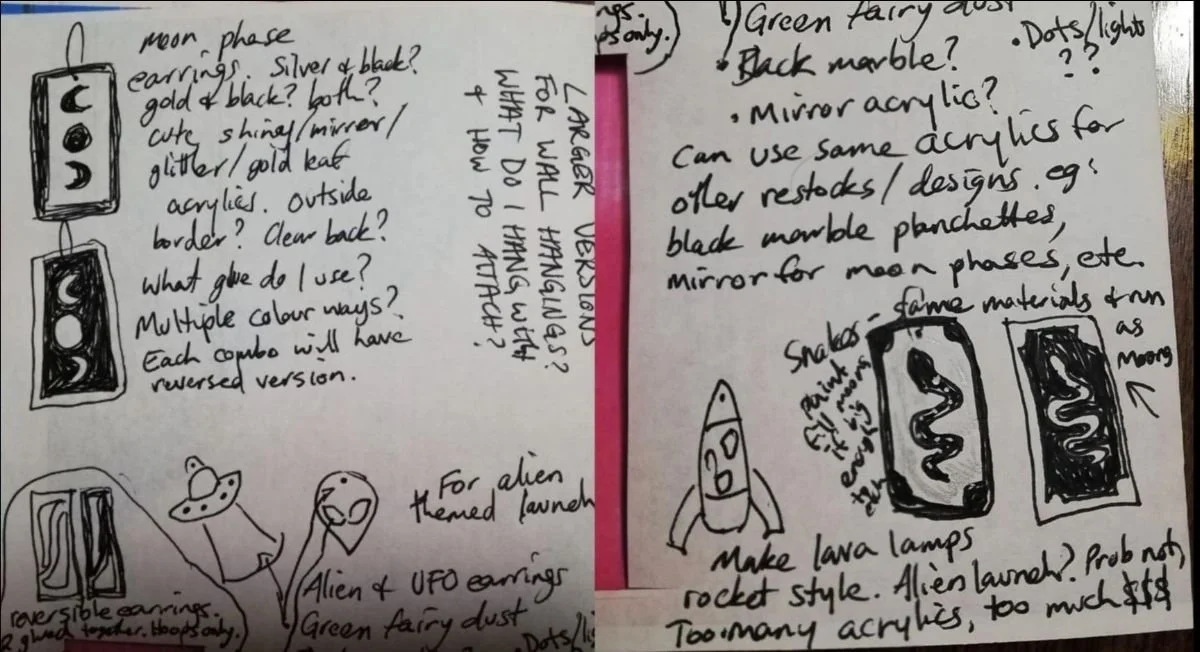 moon phase
earrings. Silver & black?
gold & black? both?
cute shiny/mirror/
glitter/gold leaf
acrylics. outside
border? Clear back?
What glue do I use?
Multiple colour ways?
Each combo will have
reversed version.
LARGER VERSIONS
FOR WALL HANGINGS?
WHAT DO I HANG WITH
& HOW TO ATTACH?
For alien
themed launch
Alien & UFO earrings
Green fairy dust
Dots/li
reversible earrings.
2 glued together. Hoops only.
ngs.
ps only.)
Green fairy dust
• Dots/lights
??
• Black marble?
• Mirror acrylic?
Can use same acrylics for
other restocks/designs. eg:
black marble planchettes,
mirror for moon phases, etc.
Snakes - same materials & run
as
moons
Paint
fill moons
if big
enough
to
Make lava lamps
rocket style. Alien launch? Prob not,
Too many acrylics, too much $$$